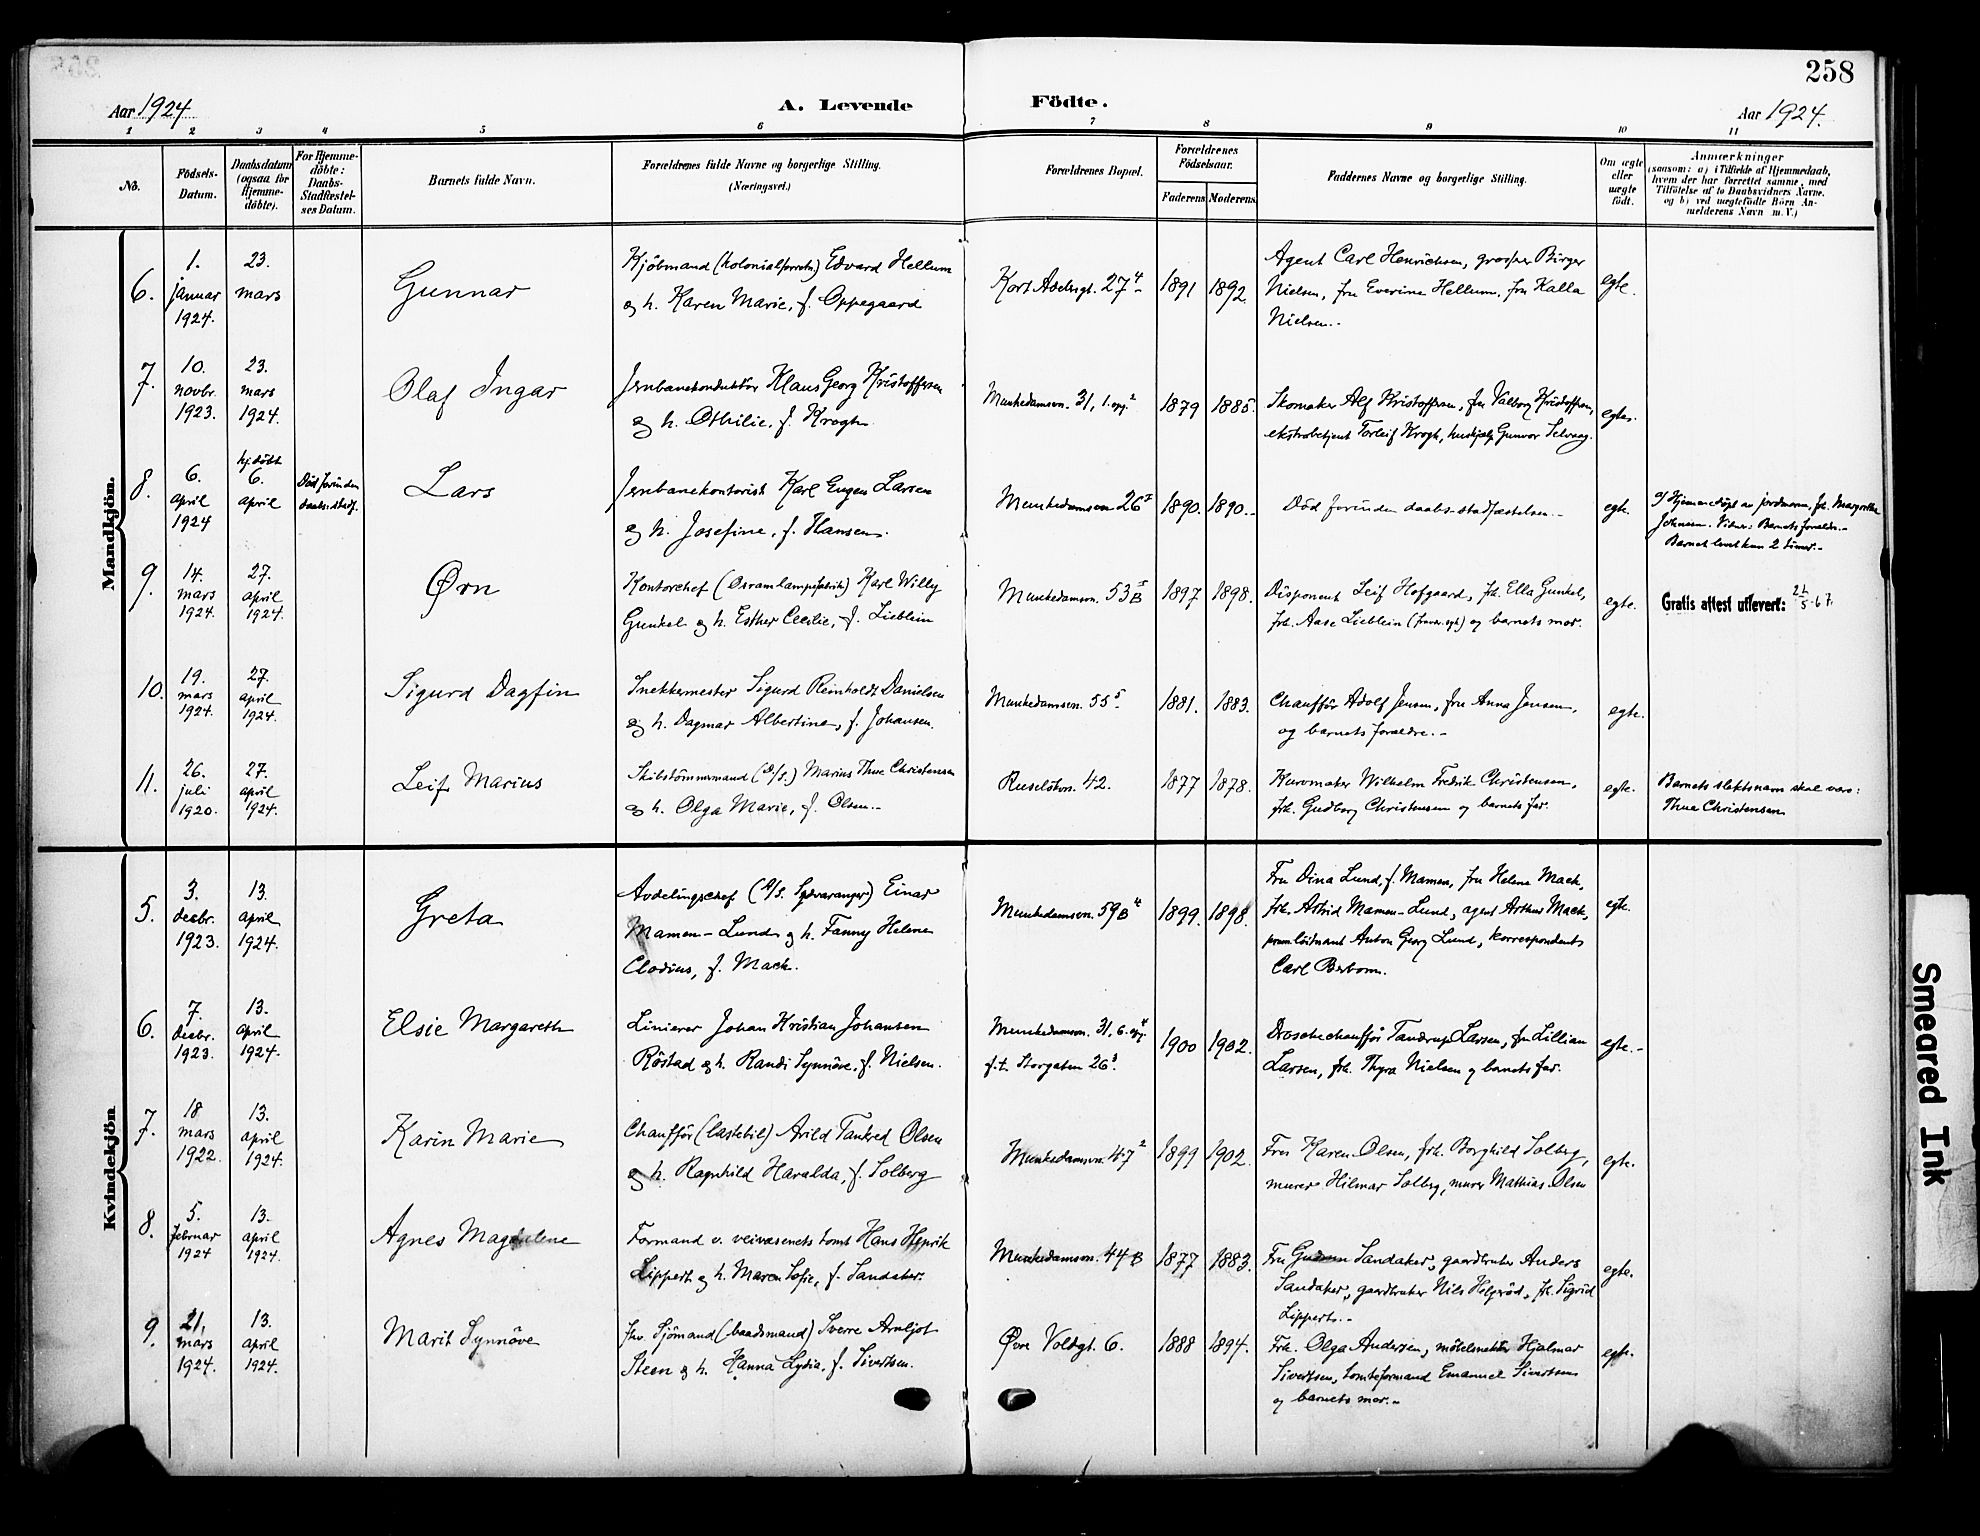 258
Aar 1924
A. Levende Födte.
Aar 1924.
1 2 3 4 5 6 7 8 9 10 11
No.
Födsels-
Datum.
Daabsdatum
(ogsaa for
Hjemme-
döbte).
For Hjemme-
döbte:
Daabs-
Stadfæstel-
ses Datum.
Barnets fulde Navn.
Forældrenes fulde Navne og borgerlige Stilling.
(Næringsvei.)
Forældrenes Bopæl.
Forældrenes
Födselsaar.
Faderens
Moderens.
Faddernes Navne og borgerlige Stilling.
Om ægte
eller
uægte
födt.
Anmærkninger
(saasom: a) i Tilfælde af Hjemmedaab,
hvem der har forrettet samme, med
Tilföielse af to Daabsvidners Navne.
og b) ved uægtefödte Börn An-
melderens Navn m. V.)
Mandkjön.
6.
1.
januar
1924.
23.
mars
Gunnar
Kjöbmand (kolonialforretn.) Edvard Hellum
og h. Karen Marie, f. Oppegaard
Kort Adelersgt. 27 4
1891
1892.
Agent Carl Henrichsen, grosser Birger
Nielsen, fru Everine Hellum, fru Kalla
Nielsen.
egte.
7.
10.
novbr.
1923.
23.
mars
1924.
Olaf Ingar
Jernbanekonduktör Klaus Georg Kristoffersen
og h. Othilie, f. Krogh.
Munkedamsvn. 31, 1. opg. 2
1879
1885.
Skomaker Alf Kristoffersen, fru Valborg Kristoffersen,
ekstrabetjent Torleif Krogh, huskjælp Gunvor Selvaag.
egte.
8.
6.
april
1924
hj.döbt
6.
april
Död forinden
daabs. stadf.
Lars
Jernbanekontorist Karl Eugen Larsen
og h. Josefine, f. Hansen.
Munkedamsvn 26 I
1890.
1890.
Död forinden daabs-stadfæstelsen.
egte.
a) Hjemmedöpt av jordmoren, frk. Margrethe
Johnsen. Vidner: Barnets forældre.
Barnet levet kun 2 timer.
9.
14.
mars
1924.
27.
april
1924.
Ørn
Kontorchef (Osramlampefabrik) Karl Willy
Gunkel og h. Esther Cecilie, f. Lieblein
Munkedamsvn. 53B 5
1897
1898.
Disponent Leif Hofgaard, frk. Ella Gunkel,
frk. Aase Lieblein og barnets mor.
egte.
Gratis attest utlevert: 22/5-67.
10.
19.
mars
1924.
27.
april
1924.
Sigurd Dagfin
Snekkermester Sigurd Reinholdt Danielsen
og h. Dagmar Albertine, f. Johansen.
Munkedamsvn. 55 5
1881.
1883.
Chaufför Adolf Jensen, fru Anna Jensen,
og barnets forældre.
egte.
11.
26.
juli
1920.
27.
april
1924.
Leif Marius
Skibstömmermand Marius Thue Christensen
og h. Olga Marie, f. Olsen.
Ruselökvn. 42.
1877
1878.
Kurvmaker Wilhelm Fredrik Christensen,
frk. Gudborg Christensen og barnets far.
egte.
Barnets slektsnavn skal være:
Thue Christensen
Kvindekjön
5.
3.
desbr.
1923.
13.
april
1924.
Greta
Avdelingschef (A/S. Sydvaranger) Einar
Mamen-Lund og h. Fanny Helene
Clodius, f. Mack.
Munkedamsvn. 59B 4
1899.
1898.
Fru Dina Lund, f. Mamen, fru Helene Mack,
frk. Astrid Mamen-Lund, agent Arthur Mack,
premlöitnant Anton Georg Lund, korrespondent
Carl Berbom.
egte.
6.
7.
desbr.
1923.
13.
april
1924.
Elsie Margareth
Linierer Johan Kristian Johansen
Röstad og h. Randi Synnöve, f. Nielsen.
Munkedamsvn. 31, 6. opg. 4
f.t. Storgaten 26 3
1900
1902.
Droschechaufför Tandrup Larsen, fru Lillian
Larsen, frk. Thyra Nielsen og barnets far.
egte.
7.
18
mars
1922.
13.
april
1924.
Karin Marie
Chaufför (lastebil) Arild Tankred Olsen
og h. Ragnhild Haralda, f. Solberg
Munkedamsvn. 47 2
1899
1902.
Fru Karen Olsen, frk. Borghild Solberg,
murer Hilmar Solberg, murer Mathias Olsen
egte.
8.
5.
februar
1924
13.
april
1924.
Agnes Magdalene
Formand v. veivæsenets tomt Hans Henrik
Lippert og h. Maren Sofie, f. Sandaker.
Munkedamsvn. 44B
1877
1883.
Fru Gudrun Sandaker, gaardbruker Anders
Sandaker, gaardbruker Nils Helgeröd, frk. Sigrid
Lippert.
egte.
9.
21.
mars
1924.
13.
april
1924.
Marit Synnöve
fhv. Sjömand (baadsmand) Sverre Arnljot
Steen og h. Hanna Lydia, f. Sivertsen.
Øvre Voldgt. 6.
1888
1894.
Frk. Olga Andersen, möbelsnekker Hjalmar
Sivertsen, tomteformand Emanuel Sivertsen
og barnets mor.
egte.
Smeared Ink